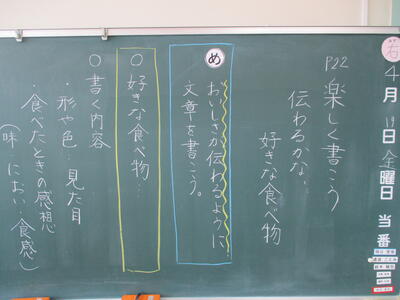 4月19日金曜日 当番
P22 楽しく書こう
伝わるかな、
好きな食べ物
め おいしさが伝わるように
文章を書こう。
○好きな食べ物…
○書く内容
・形や色 見た目
・食べたときの感想
(味 におい 食感)